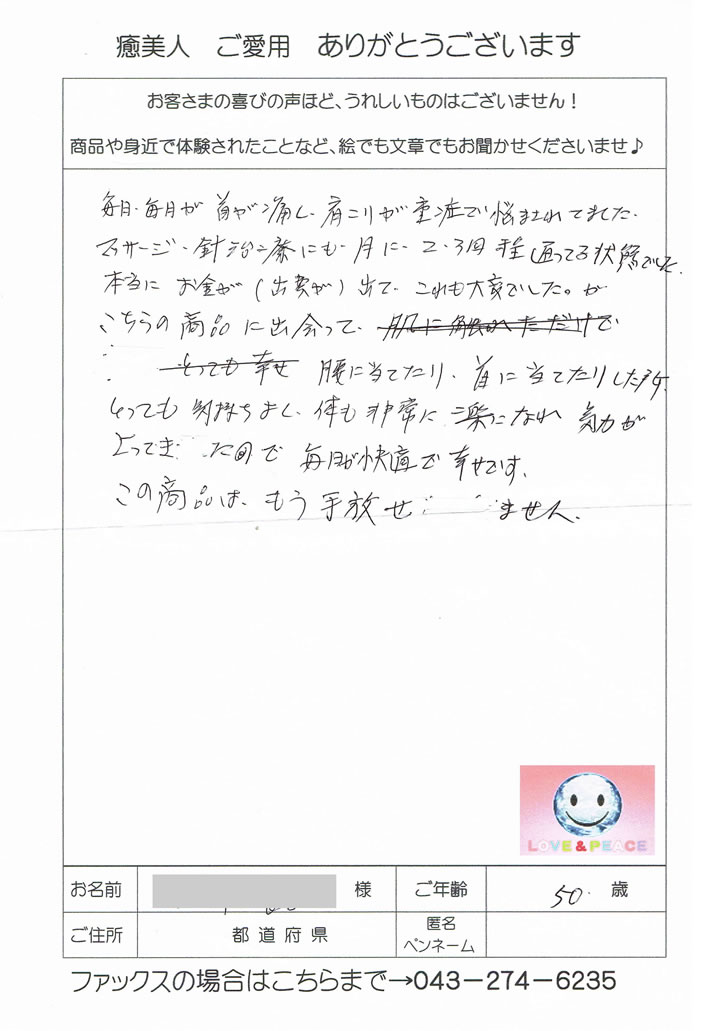 癒美人 ご愛用 ありがとうございます
お客さまの喜びの声ほど、うれしいものはございません!
商品や身近で体験されたことなど、絵でも文章でもお聞かせくださいませ♪
毎日、毎日が 首が痛し、肩こりが重症で悩まされてました。
マサージ、針治療にも、月に、2、3回程通ってる状態でした。
本当に お金が(出費が)出て、これも大変でした。が
こちらの商品に出会って、肌に触れただけで
とっても幸せ 腰に当てたり、首に当てたりした所
とっても気持ちよく、体も非常に楽になれ 気力が
上ってき たので 毎日が快適で幸せです。
この商品は、もう手放せ ません。
LOVE & PEACE
お名前 様 ご年齢 50. 歳
ご住所 都道府県 匿名ペンネーム
ファックスの場合はこちらまで→043-274-6235